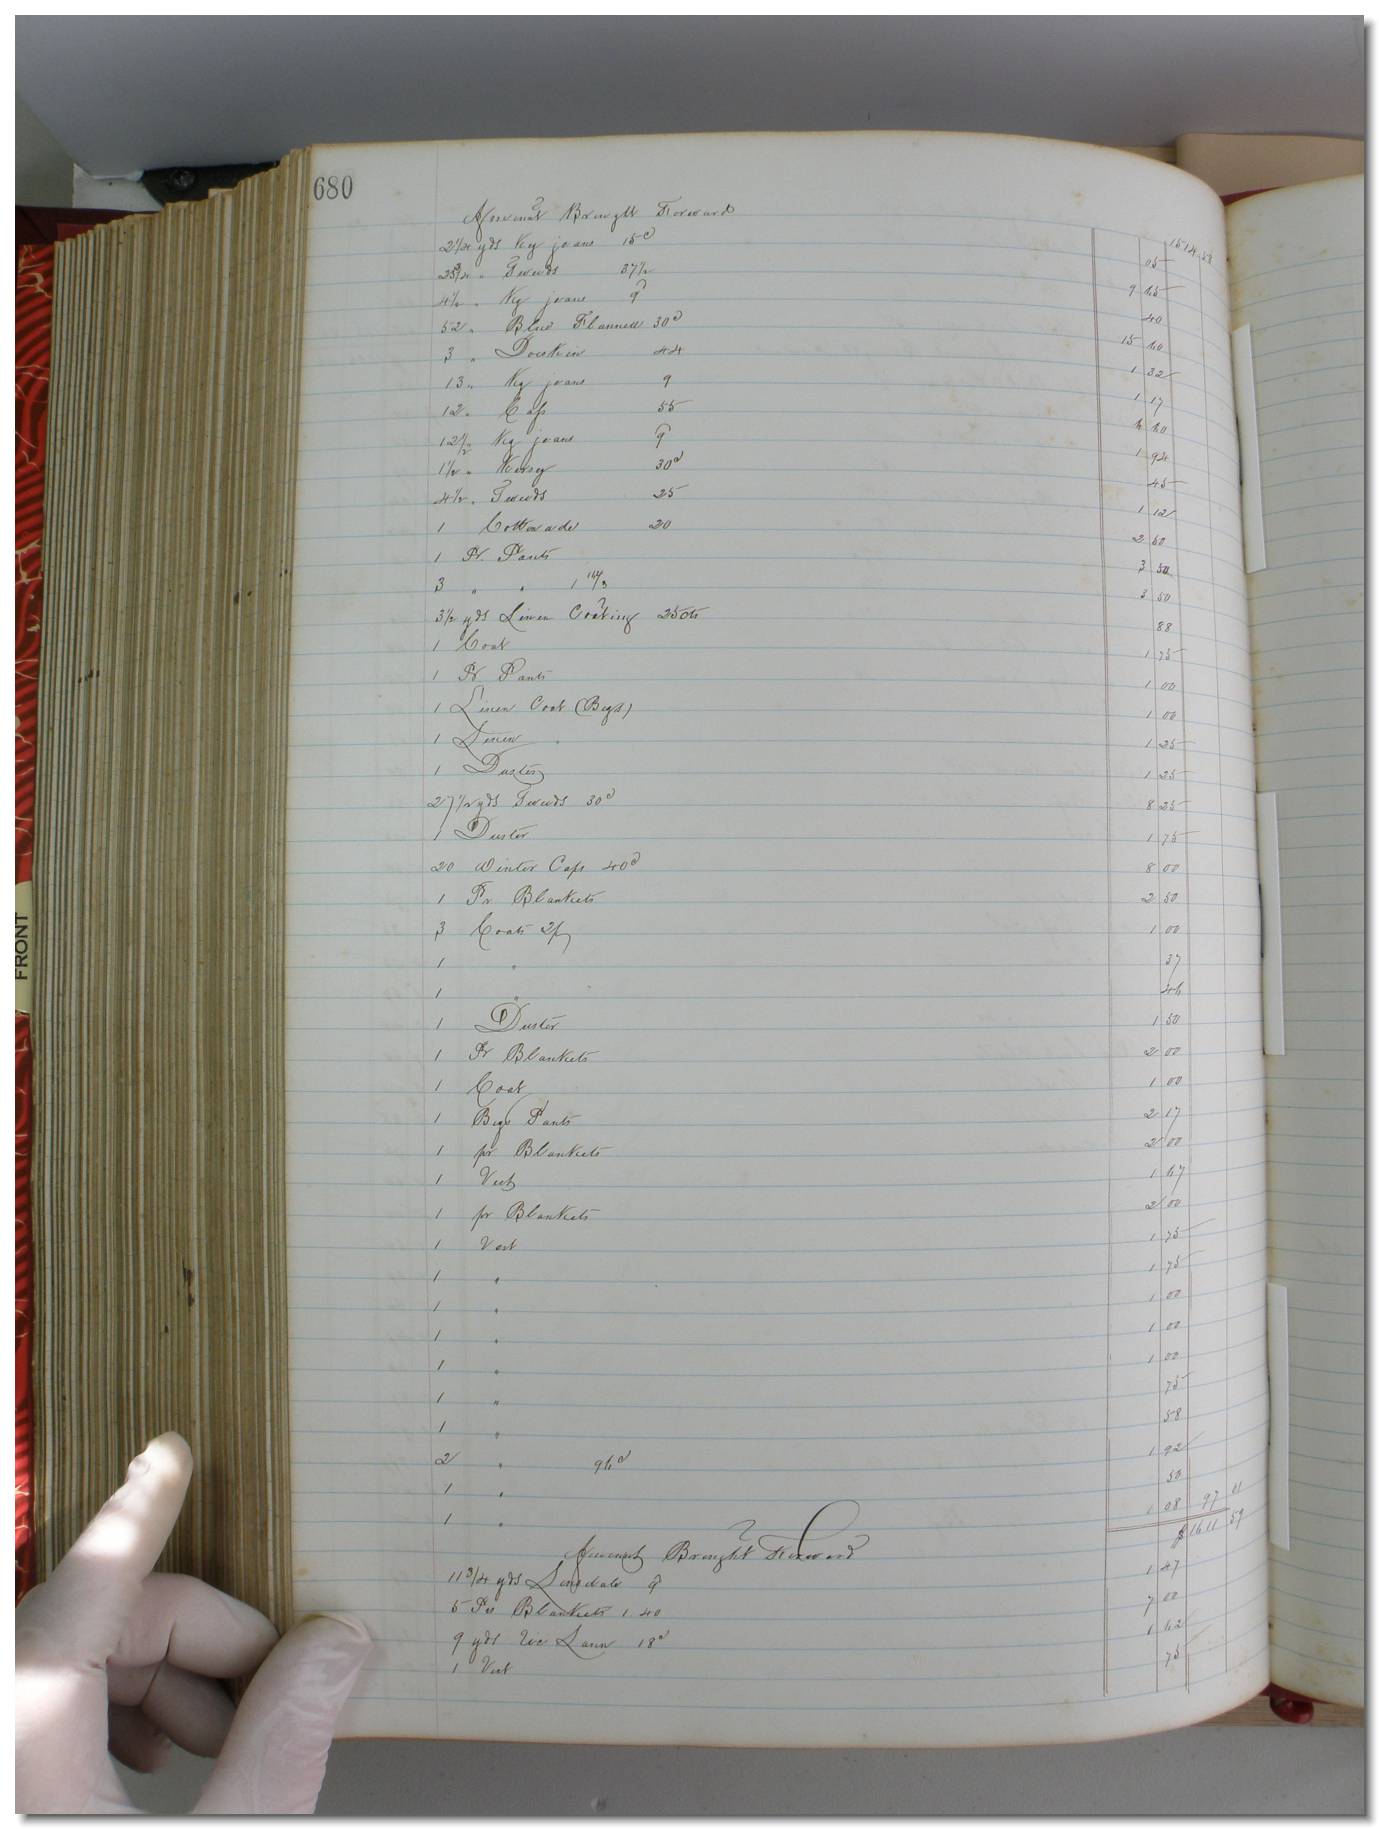 680
Amount Brought Forward 1514 58
2 1/4 yds Ky jeans 15c 05
25 3/4 " Tweeds 37 1/2 9 65
4 1/2 " Ky jeans 9 40
52 " Blue Flannel 30c 15 60
3 " Doeskin 44 1 32
13 " Ky jeans 9 1 17
12 " Caps 55 6 60
12 1/2 " Ky jeans 9 1 94
1 1/2 " Kersey 30c 45
4 1/2 " Tweeds 25 1 12
1 Cottonade 20 2 60
1 Pr. Pants 3 50
3 " " 1 16 2/3 3 50
3 1/2 yds Linen Coating 25cts 88
1 Coat 1 75
1 Pr. Pants 1 00
1 Linen Coat (Boys) 1 00
1 Linen " 1 25
1 Duster 1 25
27 1/2 yds Tweeds 30c 8 25
1 Duster 1 75
20 Winter Caps 40c 8 00
1 Pr Blankets 2 50
3 Coats 1 00
1 " 37
1 " 46
1 Duster 1 50
1 Pr Blankets 2 00
1 Coat 1 00
1 Boys Pants 2 17
1 pr Blankets 2 00
1 Vest 1 67
1 pr Blankets 2 00
1 Vest 1 75
1 " 1 75
1 " 1 00
1 " 1 00
1 " 1 00
1 " 75
1 " 58
2 " 96c 1 92
1 " 50
1 " 1 08 97 01
$1611 59
Amount Brought Forward
11 3/4 yds Linsdale 9 1 47
5 Prs Blankets 1.40 7 00
9 yds Vic Lawn 18c 1 62
1 Vest 75
FRONT